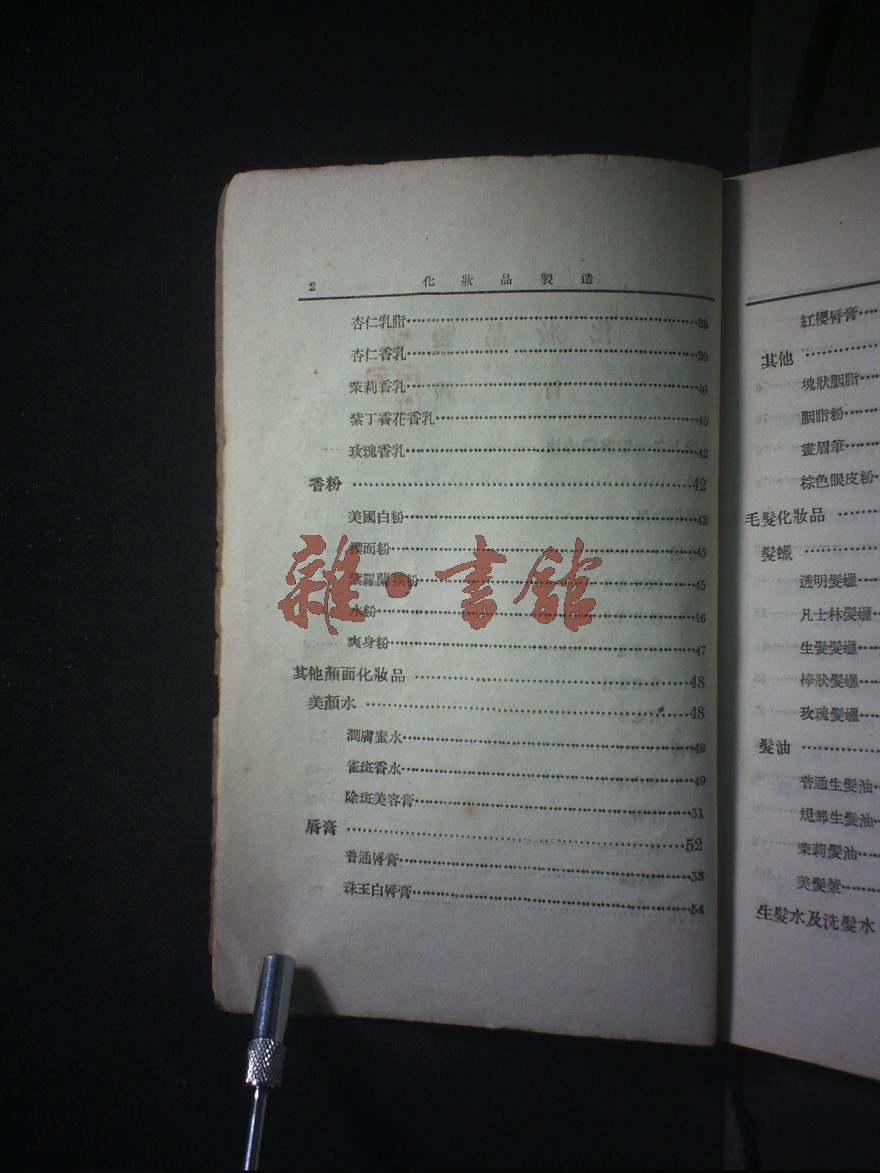 2 化妝品製造
杏仁乳脂 38
杏仁香乳 39
茉莉香乳 40
紫丁香花香乳 40
玫瑰香乳 42
香粉 42
美國白粉 43
撲面粉 45
紫羅蘭撲粉 45
水粉 46
爽身粉 47
其他顏面化妝品 48
美顏水 48
潤膚蜜水 49
雀斑香水 49
除斑美容膏 51
唇膏 52
普通唇膏 53
珠玉白唇膏 54
雜·書館
紅櫻唇膏
其他
塊狀胭脂
胭脂粉
畫眉筆
棕色眼皮粉
毛髮化妝品
髮蠟
透明髮蠟
凡士林髮蠟
生髮髮蠟
棒狀髮蠟
玫瑰髮蠟
髮油
普通生髮油
規那生髮油
茉莉髮油
美髮漿
生髮水及洗髮水